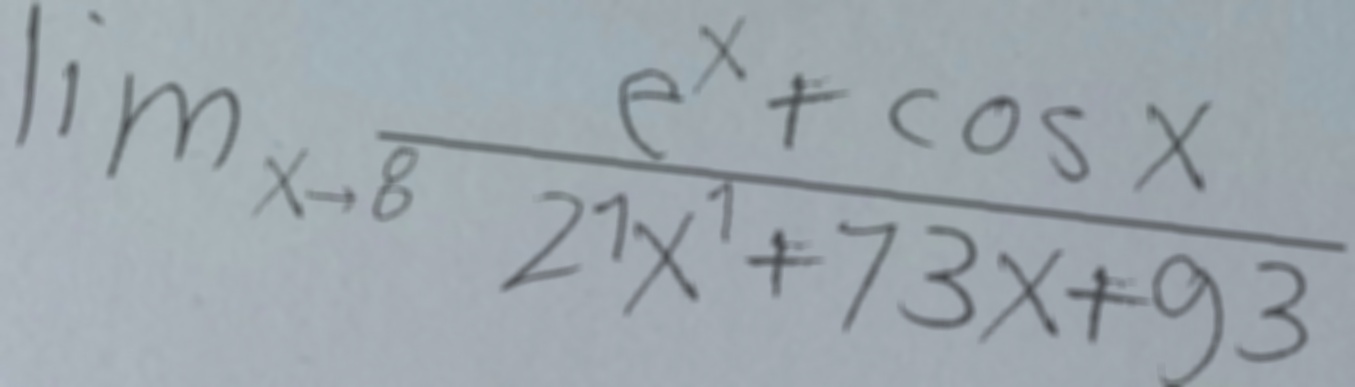 lim x→8 (e^x + cos x) / (21x^1 + 73x + 93)